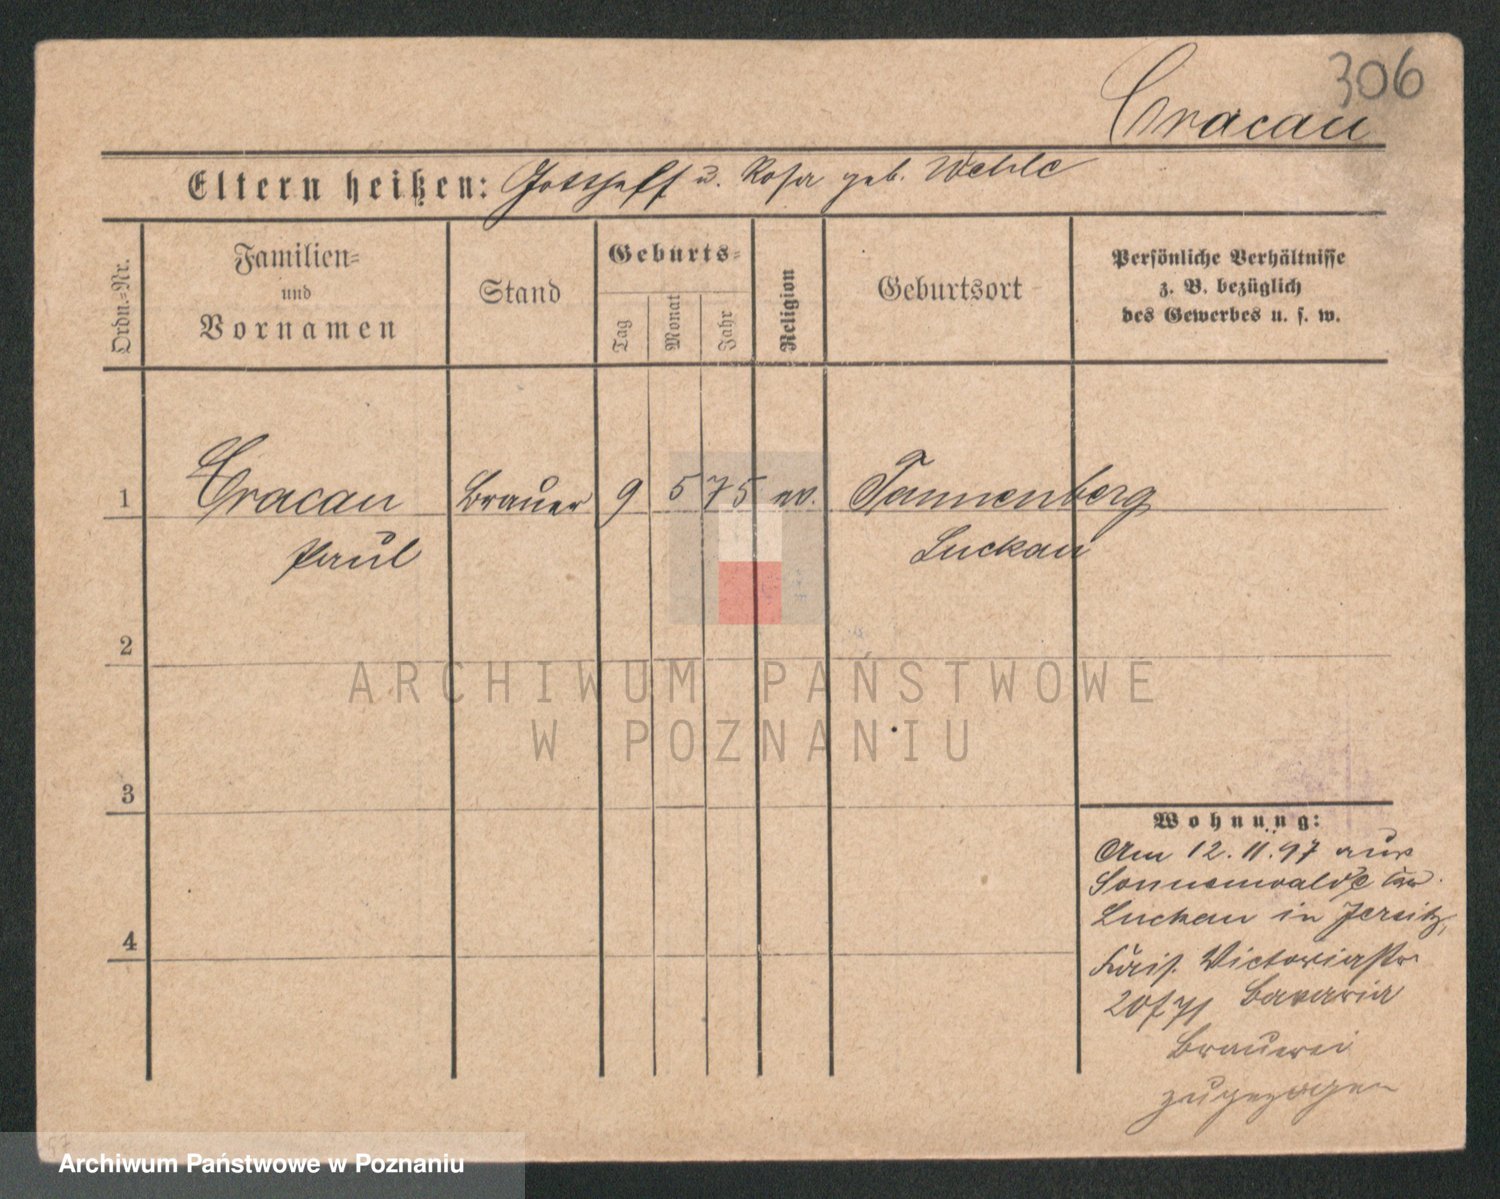 306
Cracau
Eltern heißen: Gotthelf u. Rosa geb. Wehle
Ordn.=Nr.
Familien=
und
Vornamen
Stand
Geburts=
Tag
Monat
Jahr
Religion
Geburtsort
Persönliche Verhältnisse
z. B. bezüglich
des Gewerbes u. s. w.
1 Cracau Brauer 9 5 75 ev. Tannenberg
Paul Luckau
2
ARCHIWUM PAŃSTWOWE
W POZNANIU
3
Wohnung:
Am 12.11.97 aus
Sonnenwalde
Luckau in Jersitz,
Kais. Victoriastr
20/71 Bavaria
Brauerei
zugezogen
4
Archiwum Państwowe w Poznaniu